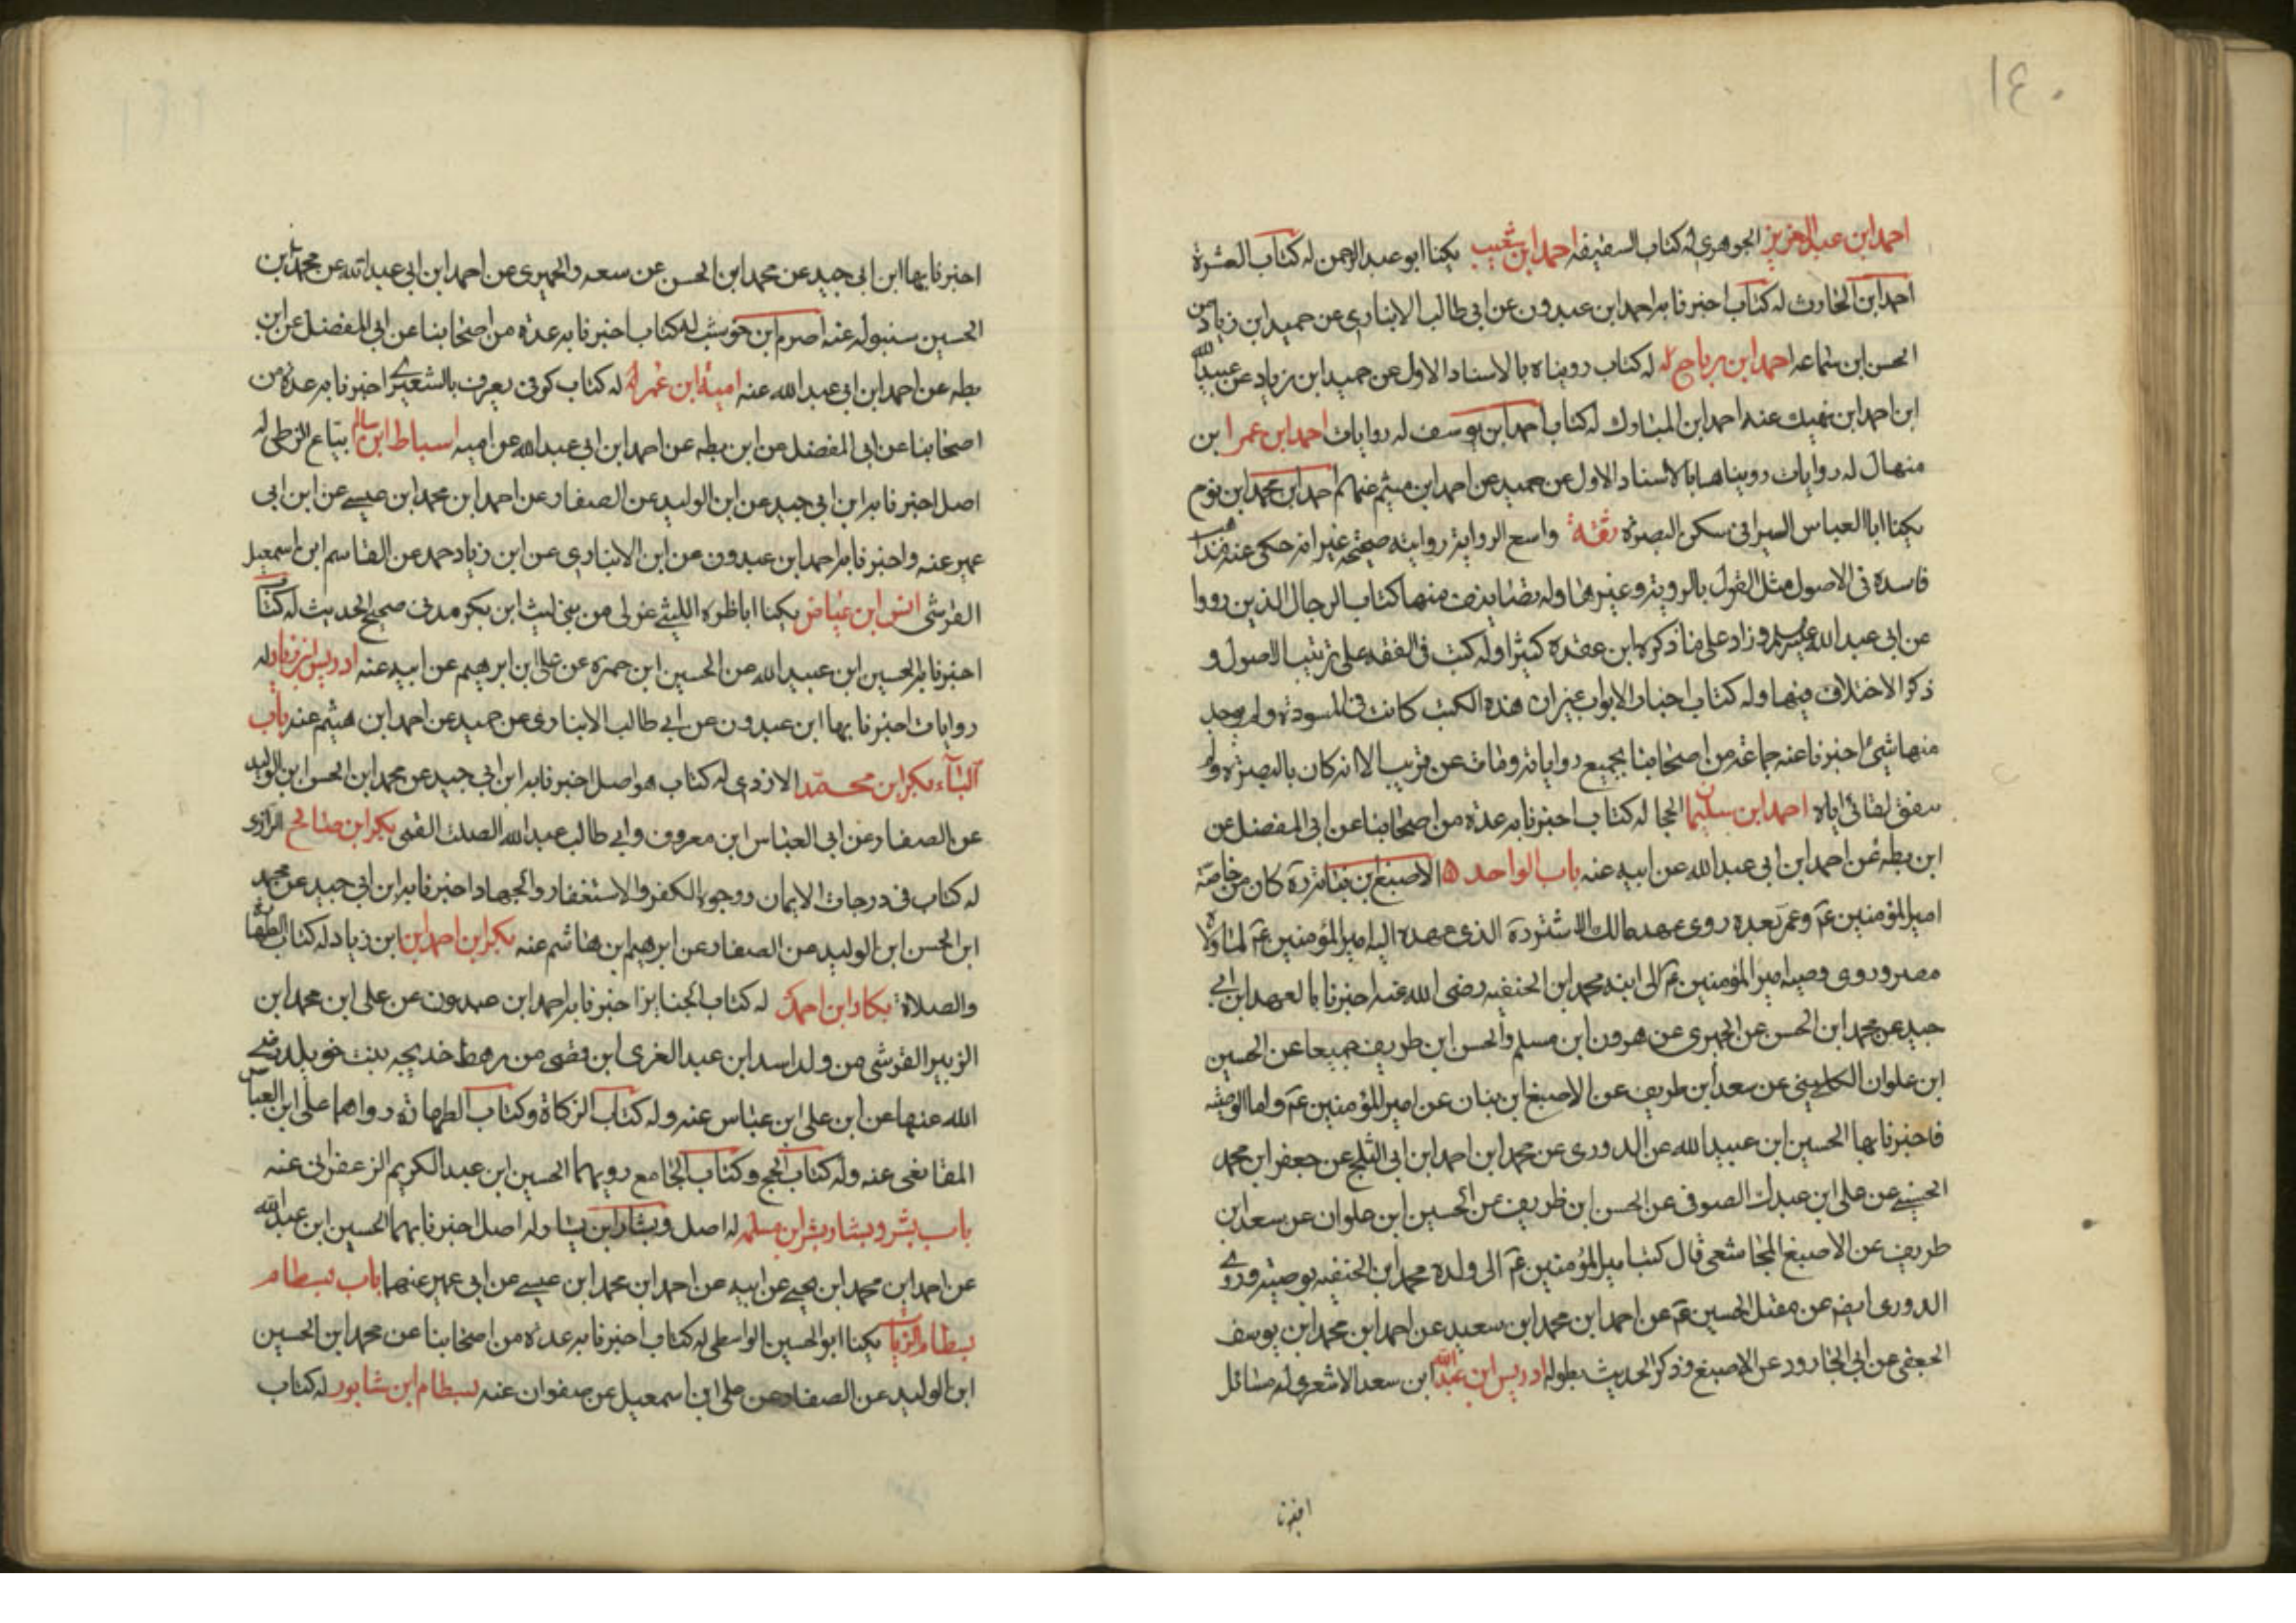 ١٤٠
احمد ابن عبد العزيز الجوهري له كتاب السقيفه احمد ابن شعيب يكنا ابو عبد الرحمن له كتاب العشرة
احمد ابن الحارث له كتاب اخبرنا به احمد ابن عبدون عن ابي طالب الانباري عن حميد ابن زياد عن
الحسن ابن سماعه احمد ابن رباح له كتاب رويناه بالاسناد الاول عن حميد ابن زياد عن عبيد الله
ابن احمد ابن نهيك عنه احمد ابن المبارك له كتاب احمد ابن يوسف له روايات احمد ابن عمر ابن
منهال له روايات رويناها بالاسناد الاول عن حميد عن احمد ابن ميثم عنهم احمد ابن محمد ابن نوح
يكنا ابا العباس السيرافى سكن البصرة ثقة واسع الرواية روايته صحيحه غير انه حكى عنه مذاهب
فاسدة فى الاصول مثل القول بالروية وغيرها وله تصانيف منها كتاب الرجال الذين رووا
عن ابى عبد الله وزاد على ما ذكره ابن عقده كثيرا وله كتب فى الفقه على ترتيب الاصول و
ذكر الاختلاف فيها وله كتاب اخبار الابواب غير ان هذه الكتب كانت فى المسودة ولم يوجد
منها شئ اخبرنا عنه جماعة من اصحابنا بجميع رواياته ومات عن قريب الا انه كان بالبصرة ولم
يتفق لقائى اياه احمد ابن سليمان الحجال له كتاب اخبرنا به عدة من اصحابنا عن ابى المفضل عن
ابن بطه عن احمد ابن ابى عبد الله عن ابيه عنه باب الواحد الاصبغ بن نباته ره كان من خاصة
امير المؤمنين عم وعمر بعده روى عهد مالك الاشتر ره الذى عهده اليه امير المؤمنين عم لما ولاه
مصر وروى وصية امير المؤمنين عم الى ابنه محمد ابن الحنفيه رضى الله عنه اخبرنا بالعهد ابن ابي
جيد عن محمد ابن الحسن عن الحميرى عن هرون ابن مسلم والحسن ابن طريف جميعا عن الحسين
ابن علوان الكلبي عن سعد ابن طريف عن الاصبغ ابن نباته عن امير المؤمنين عم واما الوصية
فاخبرنا بها الحسين ابن عبيد الله عن الدورى عن محمد ابن احمد ابن ابى الثلج عن جعفر ابن محمد
الحسيني عن على ابن عبدك الصوفى عن الحسن ابن ظريف عن الحسين ابن علوان عن سعد ابن
طريف عن الاصبغ المجاشعى قال كتب امير المؤمنين عم الى ولده محمد ابن الحنفيه بوصيته وروى
الدورى ايضا عن مقتل الحسين عم عن احمد ابن محمد ابن سعيد عن احمد ابن محمد ابن يوسف
الجعفى عن ابى الجارود عن الاصبغ وذكر الحديث بطوله ادريس ابن عبد الله ابن سعد الاشعرى له مسائل
اخبرنا
اخبرنا بها ابن ابى جيد عن محمد ابن الحسن عن سعد والحميرى عن احمد ابن ابى عبد الله عن محمد ابن
الحسين سنبوله عنه اصرم ابن حوشب له كتاب اخبرنا به عدة من اصحابنا عن ابى المفضل عن ابن
بطه عن احمد ابن ابى عبد الله عنه امية ابن عمرو له كتاب كوفى يعرف بالشعيري اخبرنا به عدة من
اصحابنا عن ابى المفضل عن ابن بطه عن احمد ابن ابى عبد الله عن اميه اسباط ابن سالم بياع الزطى له
اصل اخبرنا به ابن ابى جيد عن ابن الوليد عن الصفار عن احمد ابن محمد ابن عيسى عن ابن ابى
عمير عنه واخبرنا به احمد ابن عبدون عن ابن الانبارى عن ابن زياد حمد عن القاسم ابن اسمعيل
القرشى انس ابن عياض يكنا ابا ظمره الليثى عربى من بنى ليث ابن بكر مدنى صحيح الحديث له كتاب
اخبرنا به الحسين ابن عبيد الله عن الحسين ابن حمزه عن على ابن ابرهيم عن ابيه عنه ادريس ابن زياد له
روايات اخبرنا بها ابن عبدون عن ابي طالب الانبارى عن حميد عن احمد ابن هيثم عنه باب
الباء بكر ابن محمد الازدى له كتاب هو اصل اخبرنا به ابن ابى جيد عن محمد ابن الحسن ابن الوليد
عن الصفار عن ابى العباس ابن معروف وابى طالب عبد الله الصلت القمى بكر ابن صالح الرازى
له كتاب فى درجات الايمان ووجوه الكفر والاستغفار والجهاد اخبرنا به ابن ابى جيد عن محمد
ابن الحسن ابن الوليد عن الصفار عن ابرهيم ابن هاشم عنه بكر ابن احمد ابن ابن زياد له كتاب الطهارة
والصلاة بكار ابن احمد له كتاب الجنايز اخبرنا به احمد ابن عبدون عن على ابن محمد ابن
الزبير القرشى من ولد اسد ابن عبد الغرى ابن قصى من رهط خديجه بنت خويلد رضى
الله عنها عن ابن على ابن عباس عنه وله كتاب الزكاة وكتاب الطهارة رواهما على ابن العباس
المقانعى عنه وله كتاب الحج وكتاب الجامع رويهما الحسين ابن عبد الكريم الزعفرانى عنه
باب بشر وبشار بشر ابن مسلمه له اصل وبشار ابن يسار له اصل اخبرنا بهما الحسين ابن عبد الله
عن احمد ابن محمد ابن يحيى عن ابيه عن احمد ابن محمد ابن عيسى عن ابى عمير عنهما باب بسطام
بسطام الزيات يكنا ابو الحسين الواسطى له كتاب اخبرنا به عدة من اصحابنا عن محمد ابن الحسين
ابن الوليد عن الصفار عن على ابن اسمعيل عن صفوان عنه بسطام ابن شابور له كتاب